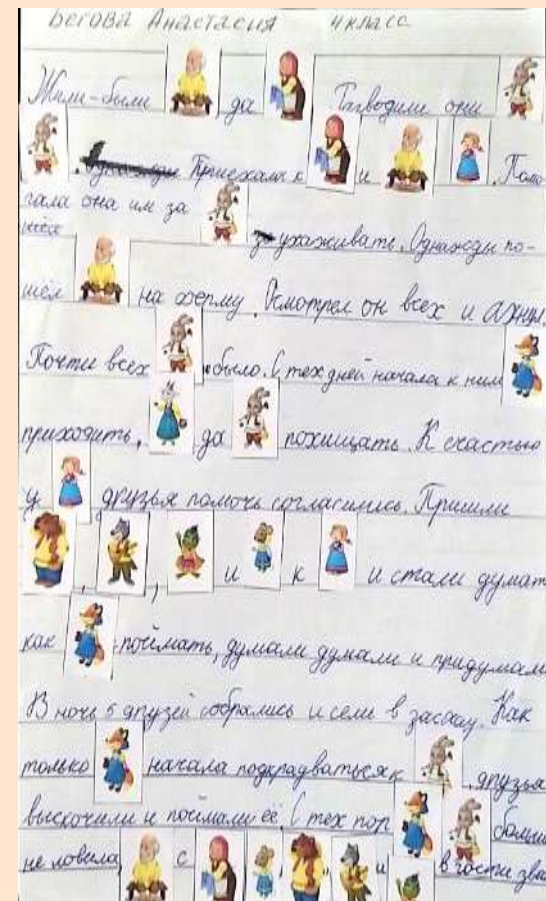 Бегова Анастасия 4 класс
Жили-были да Разводили они
. Приехали к и . Помо-
гала она им за
ухаживать. Однажды по-
шёл на ферму. Осмотрел он всех и ахнул.
Почти всех было. С тех дней начала к ним
приходить, да похищать. К счастью
у друзья помочь согласились. Пришли
, , и к и стали думат
как поймать, думали думали и придумали
В ночь 5 друзей собрались и сели в засаду. Как
только начала подкрадваться к , друзья
выскочили и поймали её. С тех пор больш
не ловила, с , , , и в гости зва